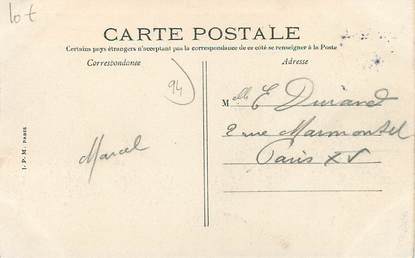 lot
CARTE POSTALE
Certains pays étrangers n'acceptant pas la correspondance de ce côté se renseigner à la Poste
Correspondance
Adresse
94
Mlle E Durand
2 rue Marmontel
Paris XV
Marcel
I. P. M. PARIS